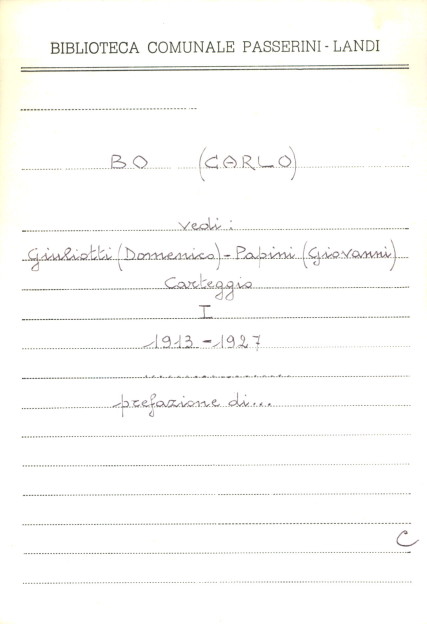 BIBLIOTECA COMUNALE PASSERINI - LANDI
BO (CARLO)
vedi :
Giuliotti (Domenico) - Papini (Giovanni)
Carteggio
I
1913 - 1927
....................
prefazione di...
C